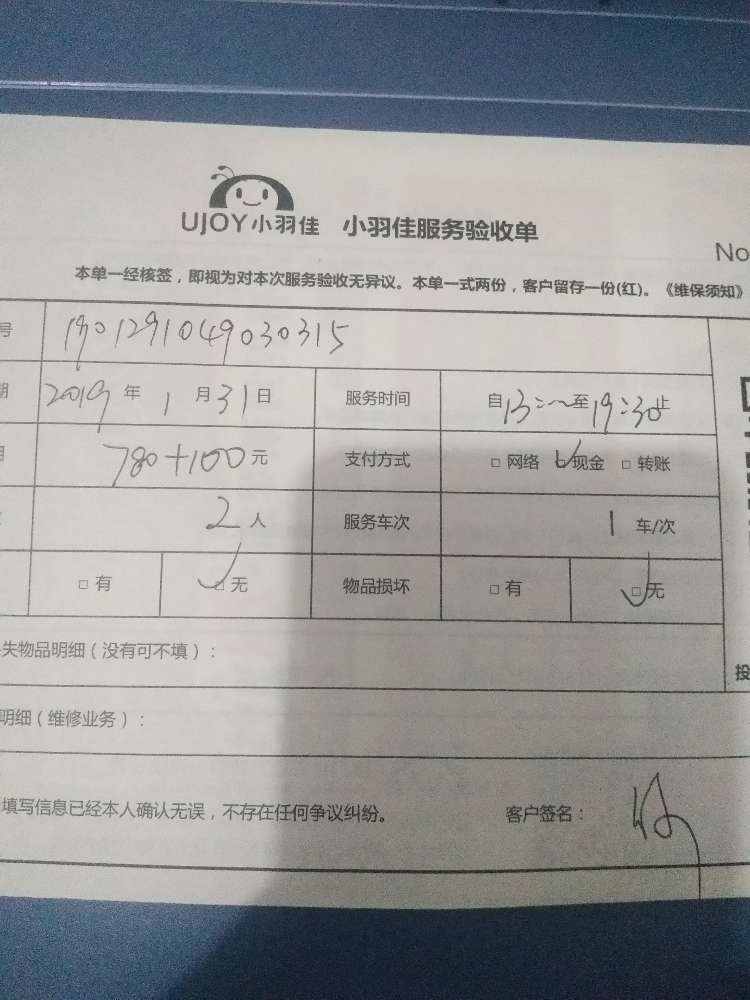 UJOY小羽佳 小羽佳服务验收单
No
本单一经核签，即视为对本次服务验收无异议。本单一式两份，客户留存一份(红)。《维保须知》
号 1901291049030315
期 2019 年 1 月 31 日 服务时间 自 13:~ 至 19:30 止
用 780+100 元 支付方式 □ 网络 ☑ 现金 □ 转账
2 人 服务车次 1 车/次
□ 有 ☑ 无 物品损坏 □ 有 ☑ 无
失物品明细（没有可不填）：
投
明细（维修业务）：
填写信息已经本人确认无误，不存在任何争议纠纷。 客户签名：